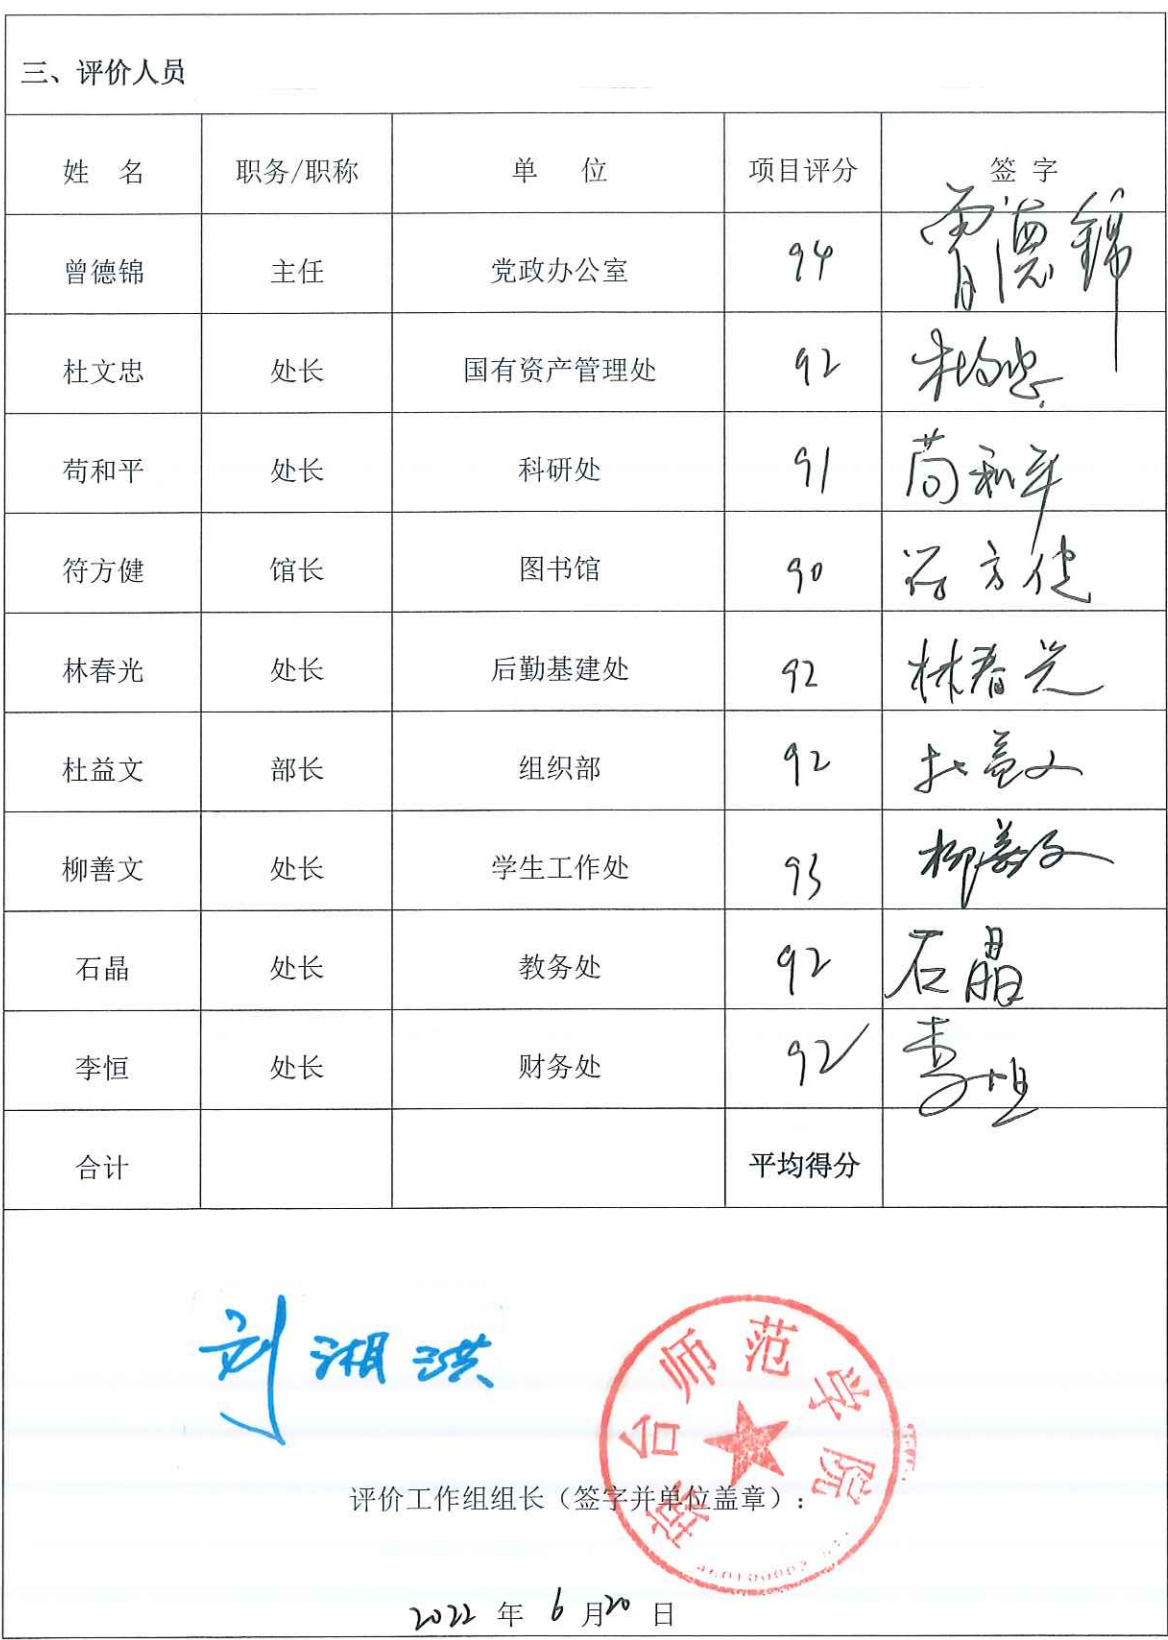 三、评价人员
姓 名 职务/职称 单 位 项目评分 签 字
曾德锦 主任 党政办公室 94 曾德锦
杜文忠 处长 国有资产管理处 92 杜文忠
苟和平 处长 科研处 91 苟和平
符方健 馆长 图书馆 90 符方健
林春光 处长 后勤基建处 92 林春光
杜益文 部长 组织部 92 杜益文
柳善文 处长 学生工作处 93 柳善文
石晶 处长 教务处 92 石晶
李恒 处长 财务处 92 李恒
合计 平均得分
刘湘洪
琼台师范学院
评价工作组组长（签字并单位盖章）：
2022 年 6 月 20 日